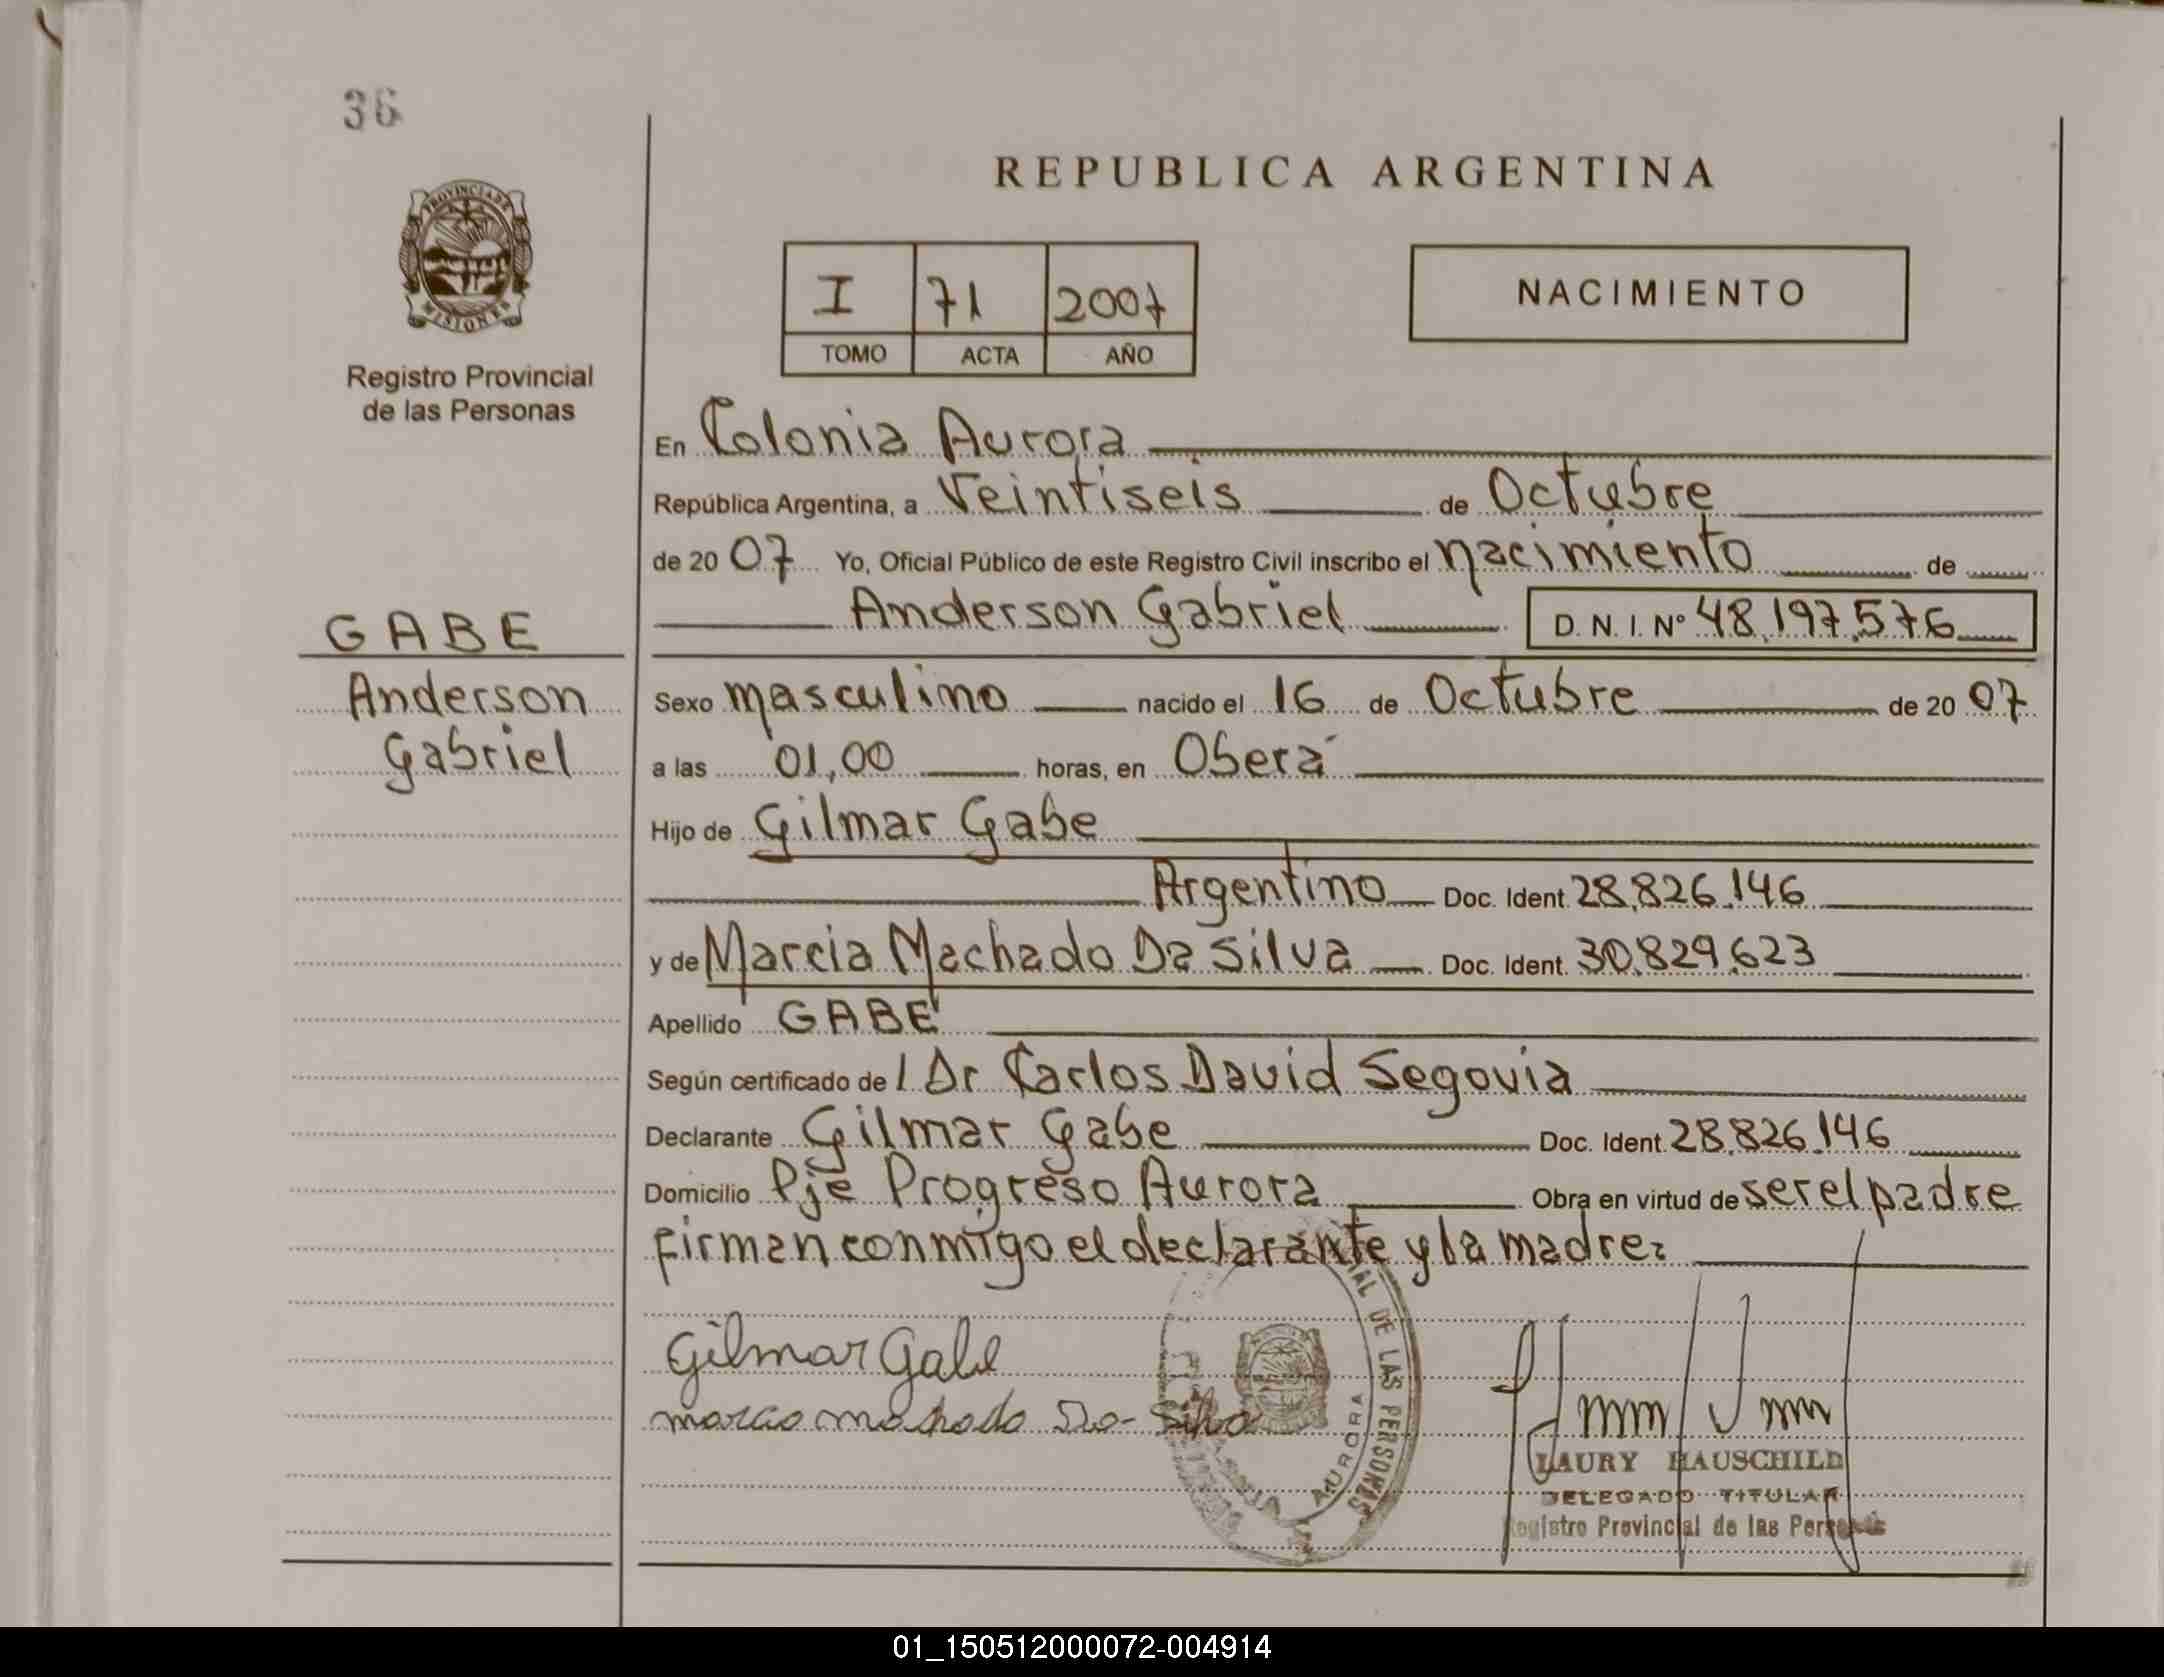 36
PROVINCIA DE
MISIONES
Registro Provincial
de las Personas
GABE
Anderson
Gabriel
REPUBLICA ARGENTINA
I 71 2007
TOMO ACTA AÑO
NACIMIENTO
En Colonia Aurora
República Argentina, a Veintiseis de Octubre
de 20 07 Yo, Oficial Público de este Registro Civil inscribo el nacimiento de
Anderson Gabriel D. N. I. Nº 48.197.576
Sexo masculino nacido el 16 de Octubre de 20 07
a las 01,00 horas, en Oberá
Hijo de Gilmar Gabe
Argentino Doc. Ident. 28.826.146
y de Marcia Machado Da Silva Doc. Ident. 30.829.623
Apellido GABE
Según certificado de l Dr Carlos David Segovia
Declarante Gilmar Gabe Doc. Ident. 28.826.146
Domicilio Pje Progreso Aurora Obra en virtud de ser el padre
firman conmigo el declarante y la madre:
Gilmar Gabe
marcia machado Da-Silva
DE LAS PERSONAS
AURORA
LAURY HAUSCHILD
DELEGADO TITULAR
Registro Provincial de las Personas
01_150512000072-004914